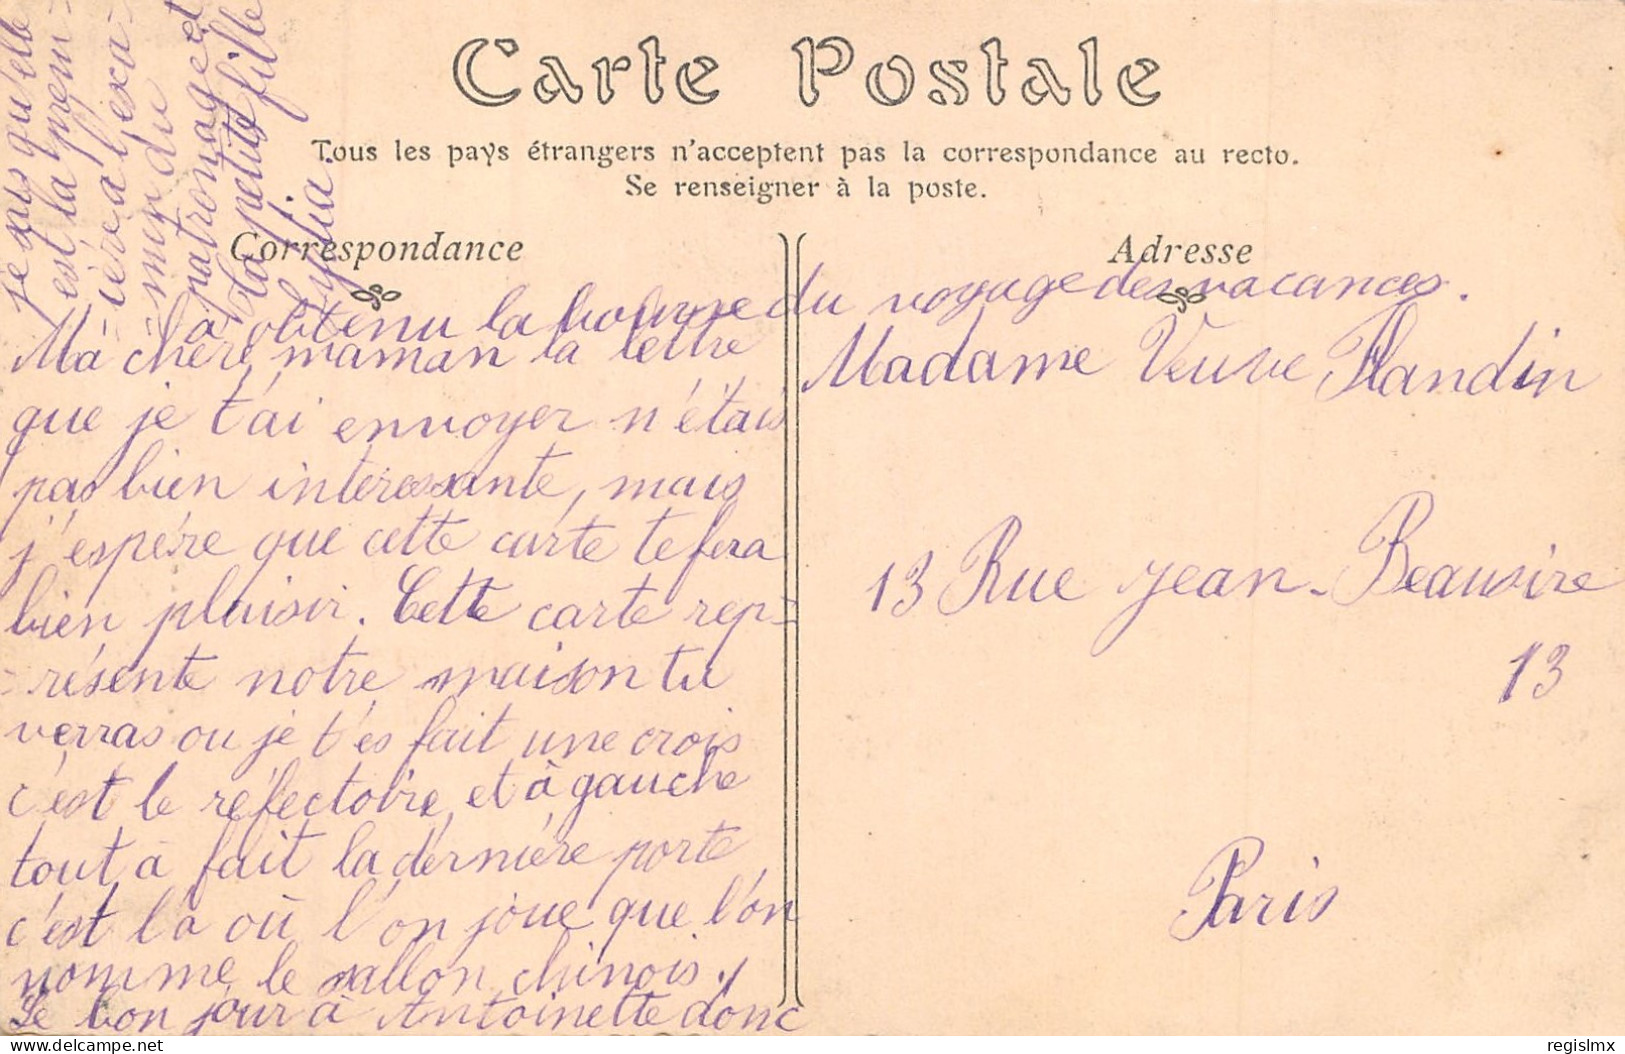 Carte Postale
Tous les pays étrangers n'acceptent pas la correspondance au recto.
Se renseigner à la poste.
Correspondance
Adresse
Ma chère maman la lettre
que je t'ai envoyer n'étais
pas bien intéressante, mais
j'espére que cette carte te fera
bien plaisir. Cette carte rep=
=résente notre maison tu
verras ou je t'es fait une crois
c'est le réfectoire, et à gauche
tout à fait la dérnière porte,
c'est là où l'on joue que l'on
nomme le sallon chinois.
Le bonjour à Antoinette donc
je sais qu'elle
est la prem=
=ière à l'exa=
=men du
patronage et
la petite fille
Sylvia.
a obtenu la bourse du voyage des vacances.
Madame Veuve Flandin
13 Rue Jean-Beausire
13
Paris
regislmx
delcampe.net